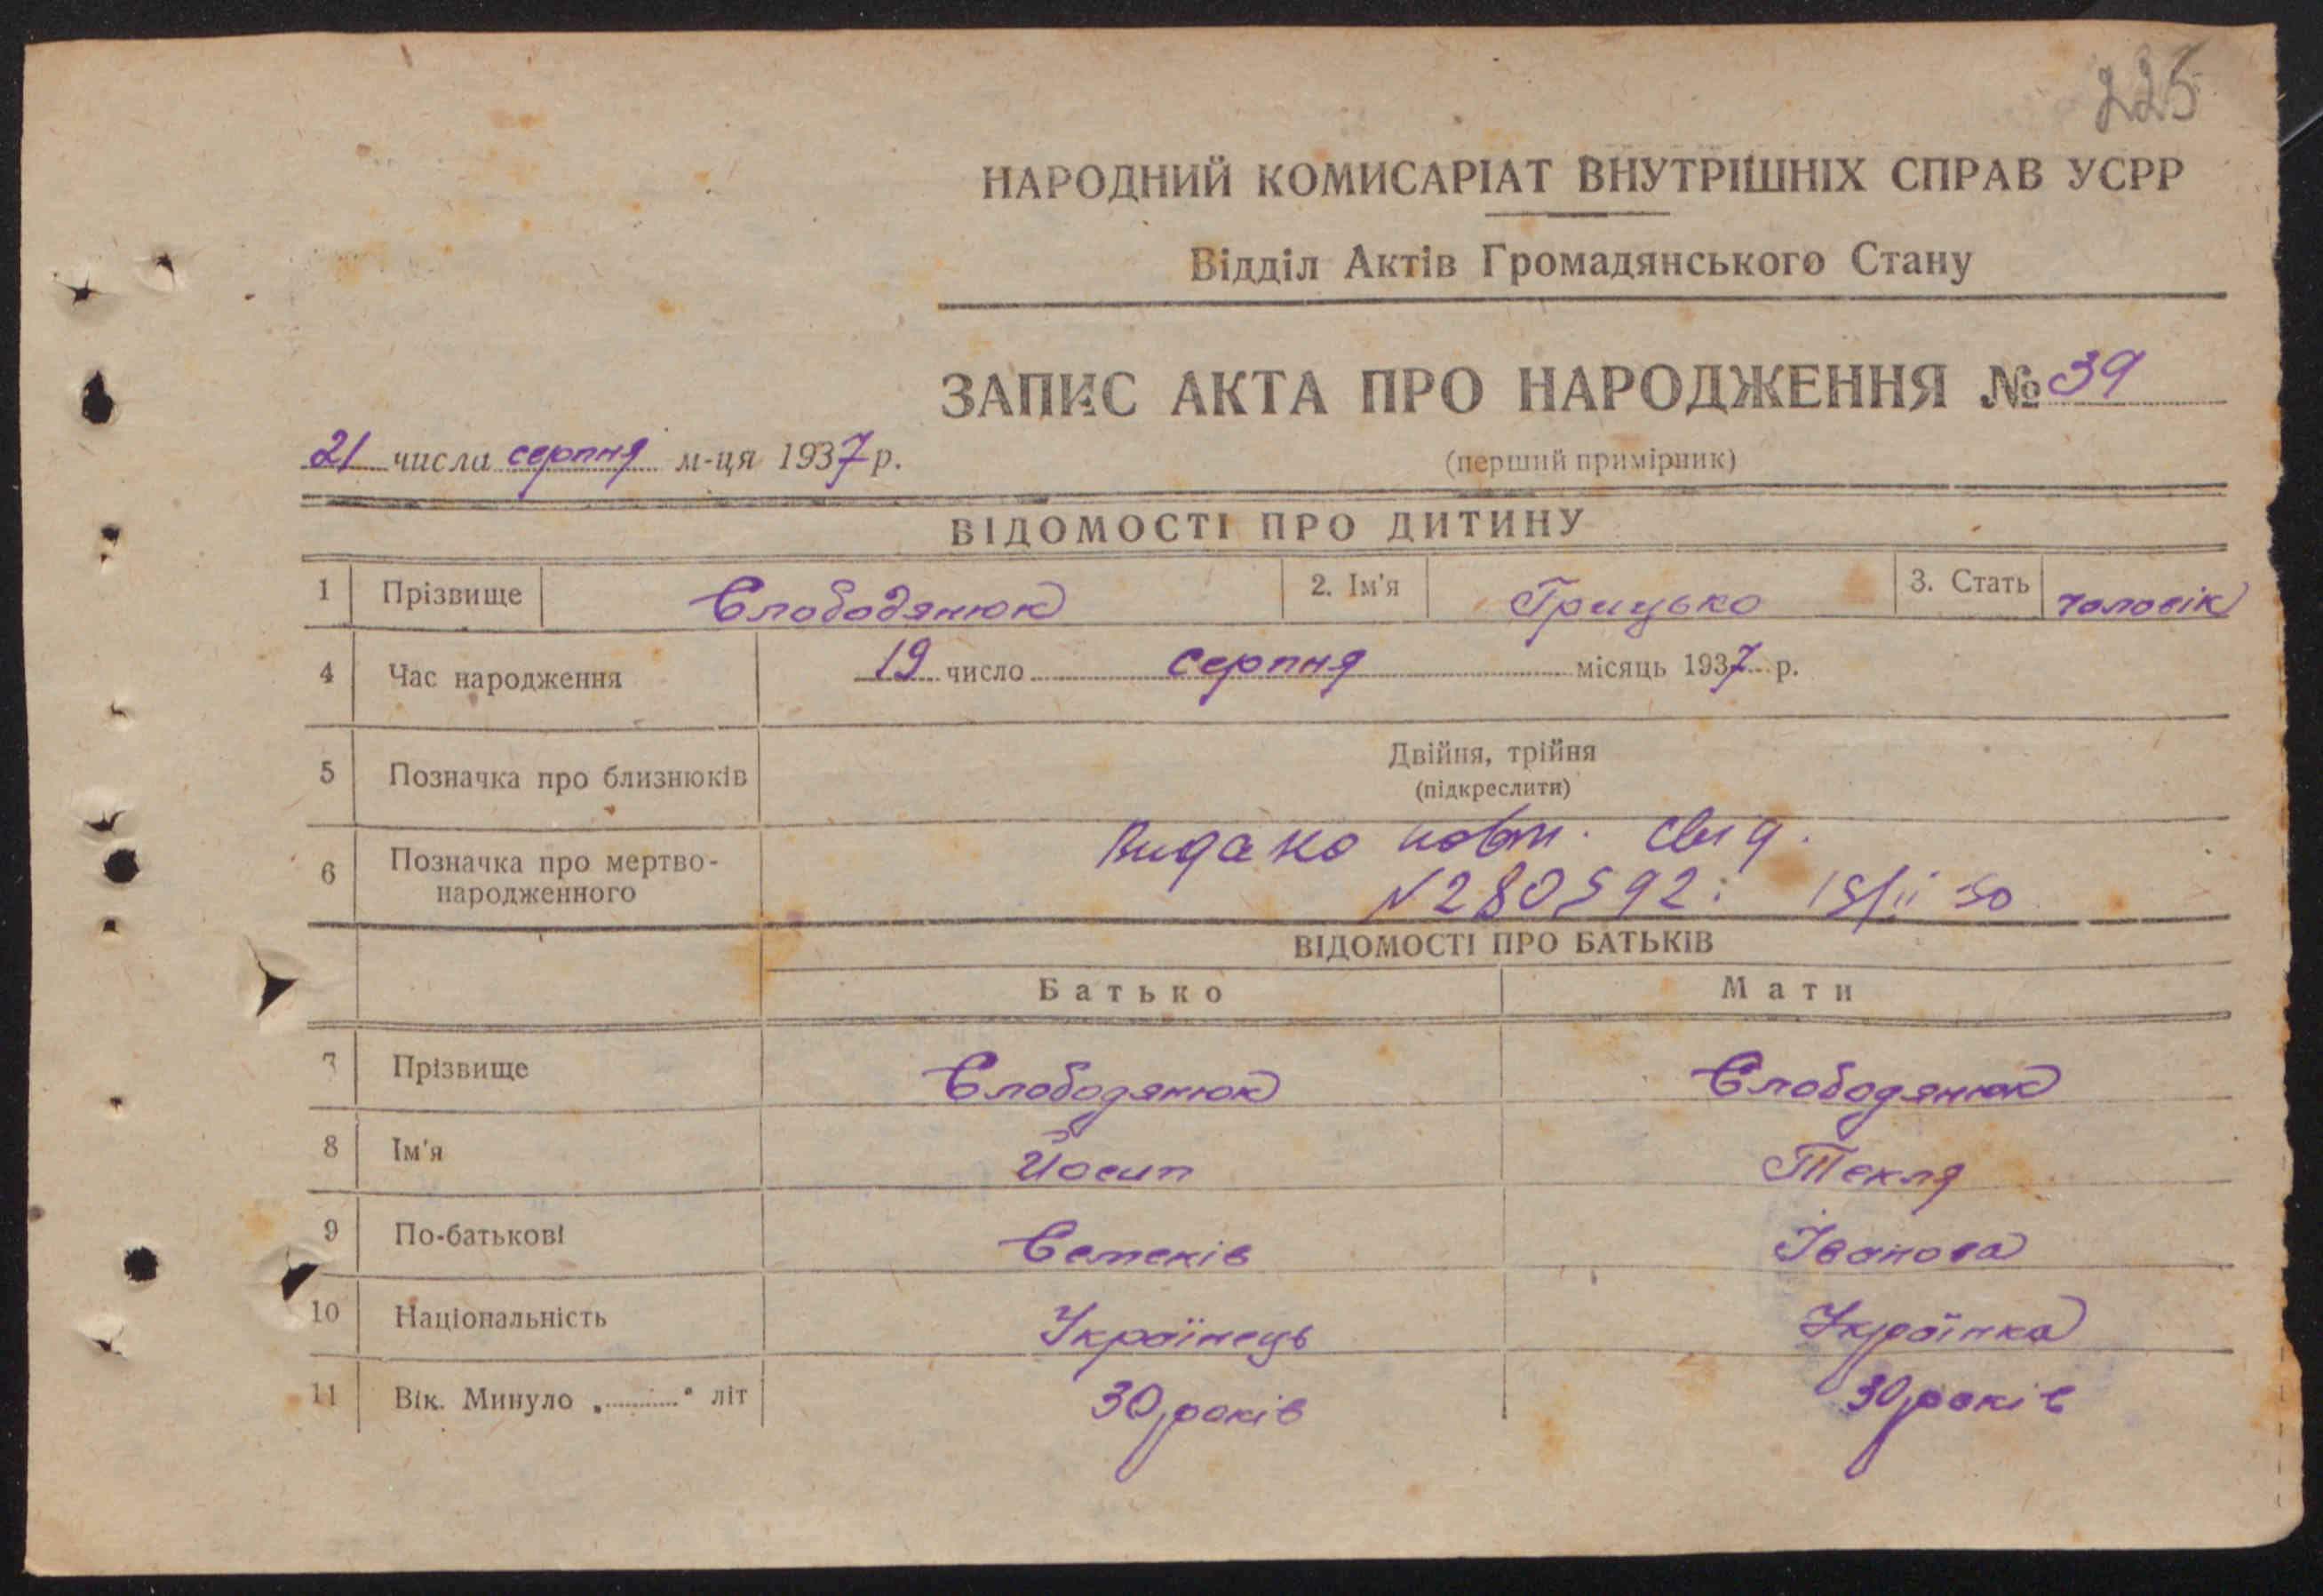 225
НАРОДНИЙ КОМИСАРІАТ ВНУТРІШНІХ СПРАВ УСРР
Відділ Актів Громадянського Стану
ЗАПИС АКТА ПРО НАРОДЖЕННЯ № 39
21 числа серпня м-ця 1937 р.
(перший примірник)
ВІДОМОСТІ ПРО ДИТИНУ
1 Прізвище Слободянюк 2. Ім'я Грицько 3. Стать чоловік
4 Час народження 19 число серпня місяць 1937 р.
5 Позначка про близнюків Двійня, трійня
(підкреслити)
6 Позначка про мертво-
народженного
Видано повт. свид.
N 280592
ВІДОМОСТІ ПРО БАТЬКІВ
Батько Мати
7 Прізвище Слободянюк Слободянюк
8 Ім'я Йосип Текля
9 По-батькові Семенів Іванова
10 Національність Українець Українка
11 Вік. Минуло „.........." літ 30 років 30 років